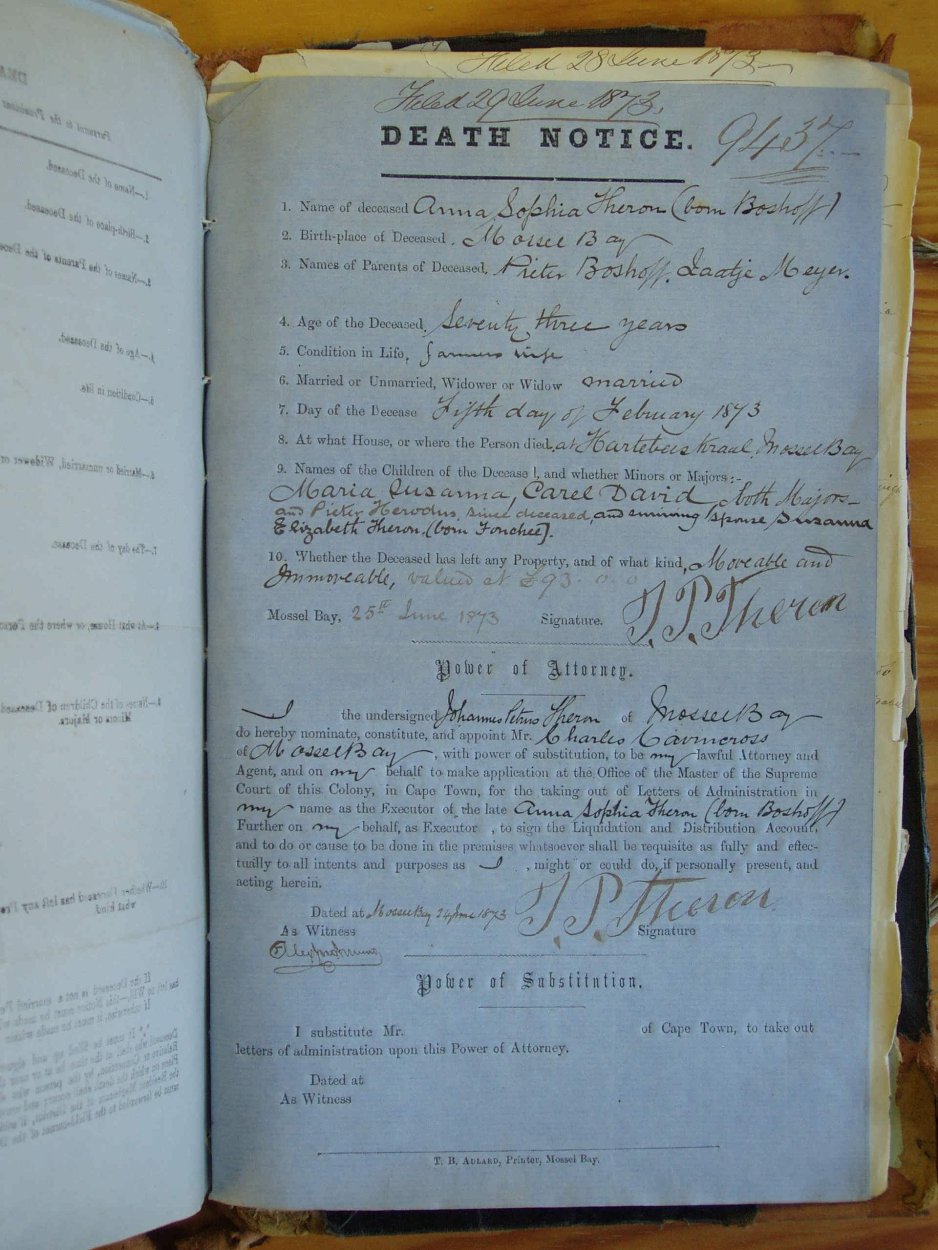 Filed 28 June 1873
Filed 29 June 1873.
DEATH NOTICE. 9437.
1. Name of deceased Anna Sophia Theron (born Boshoff)
2. Birth-place of Deceased. Mossel Bay
3. Names of Parents of Deceased. Pieter Boshoff. Zaatje Meyer.
4. Age of the Deceased, Seventy three years
5. Condition in Life, farmers wife
6. Married or Unmarried, Widower or Widow married
7. Day of the Decease Fifth day of February 1873
8. At what House, or where the Person died, at Hartebees Kraal, Mossel Bay
9. Names of the Children of the Deceased, and whether Minors or Majors:-
Maria Susanna, Carel David, both Majors—
and Pieter since deceased, and surviving spouse, Susanna
Elizabeth Theron, (born Fouchee).
10. Whether the Deceased has left any Property, and of what kind, Moveable and
Immoveable, valued at £93.0.0
Mossel Bay, 25th June 1873 Signature. J. P. Theron
Power of Attorney.
I the undersigned Johannes Petrus Theron of Mossel Bay
do hereby nominate, constitute, and appoint Mr. Charles Cairncross
of Mossel Bay, with power of substitution, to be my lawful Attorney and
Agent, and on my behalf to make application at the Office of the Master of the Supreme
Court of this Colony, in Cape Town, for the taking out of Letters of Administration in
my name as the Executor of the late Anna Sophia Theron (born Boshoff)
Further on my behalf, as Executor , to sign the Liquidation and Distribution Account,
and to do or cause to be done in the premises whatsoever shall be requisite as fully and effec-
tually to all intents and purposes as I , might or could do, if personally present, and
acting herein.
Dated at Mossel Bay 24 June 1873 J. P. Theron
As Witness Signature
Power of Substitution.
I substitute Mr. of Cape Town, to take out
letters of administration upon this Power of Attorney.
Dated at
As Witness
T. B. Adlard, Printer, Mossel Bay.